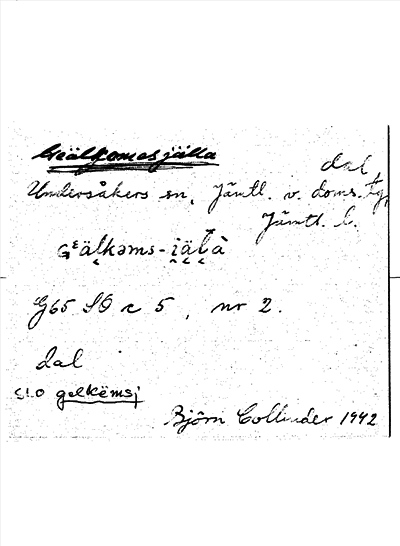 Geälkomesjälla
dal
Undersåkers sn, Jämtl. v. doms. tg,
Jämtl. l.
Gᵋälkəms-i̯äl̄à
G65 SO c 5, nr 2.
dal
SLO gelkëmsj
Björn Collinder 1942